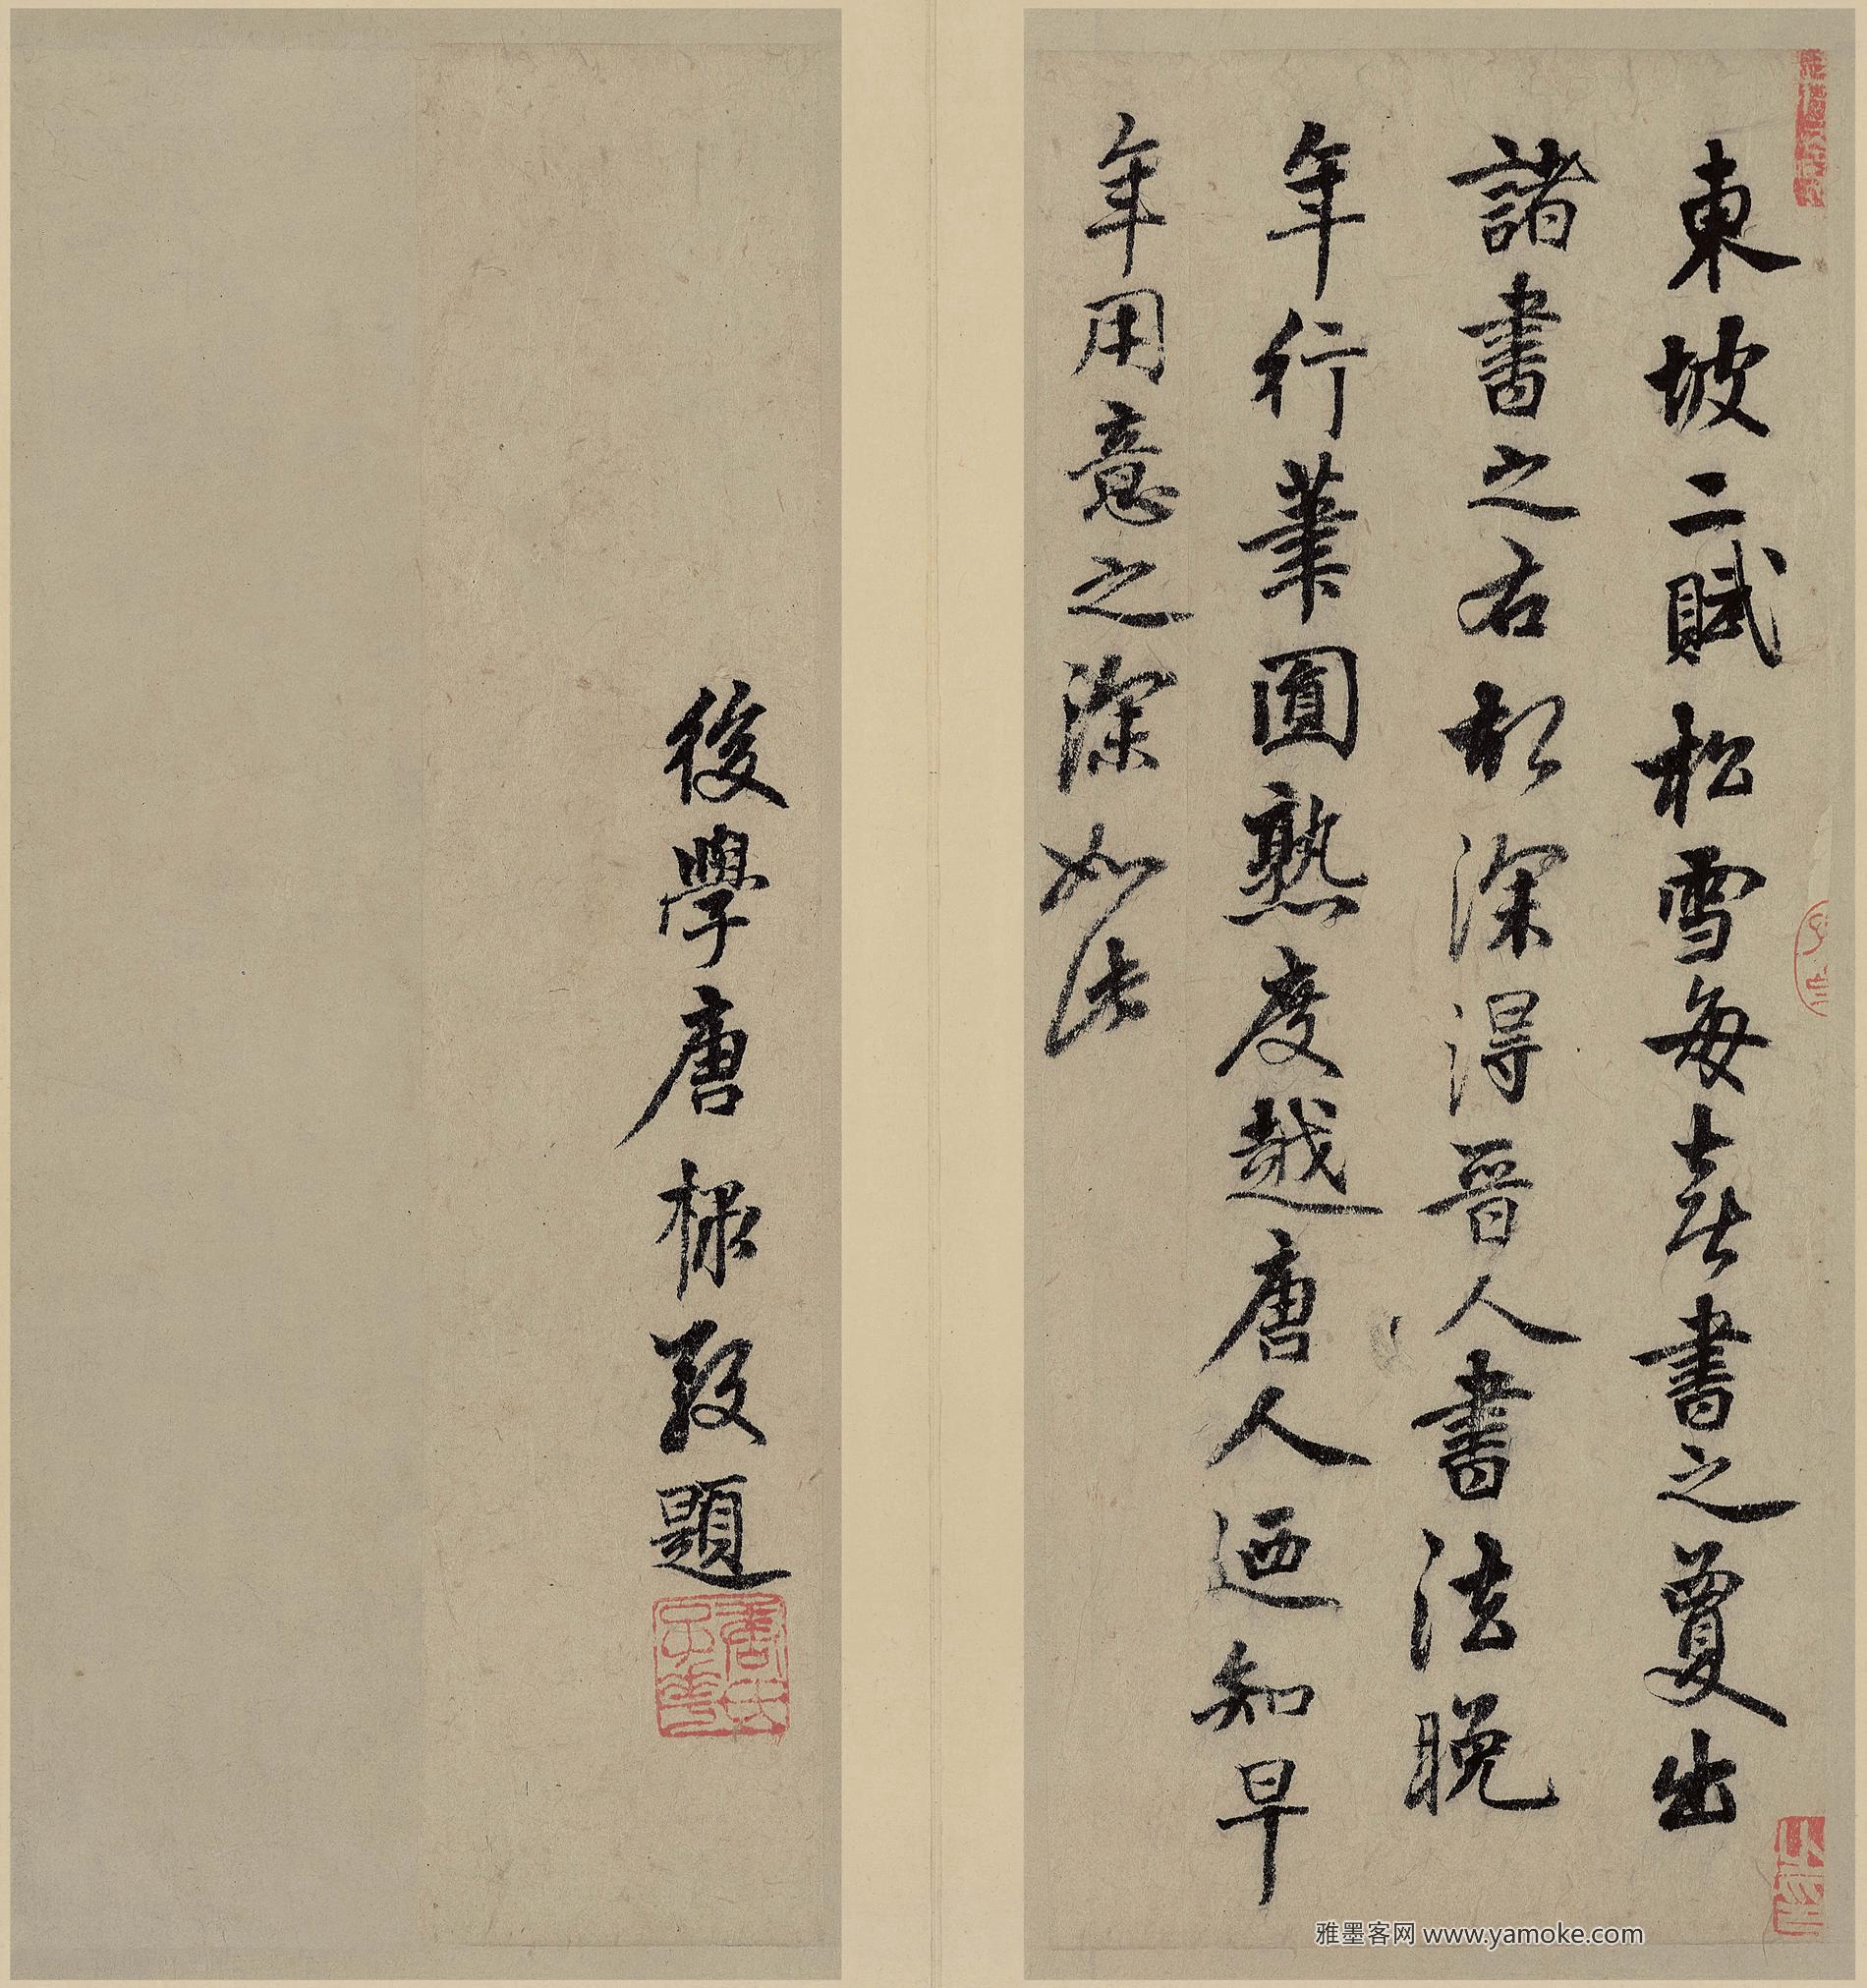 東坡二賦松雪每喜書之夐出
諸書之右故深得晉人書法晚
年行筆圓熟度越唐人迺知早
年用意之深如此
後學唐棣敬題
唐氏子華
雅墨客网 www.yamoke.com